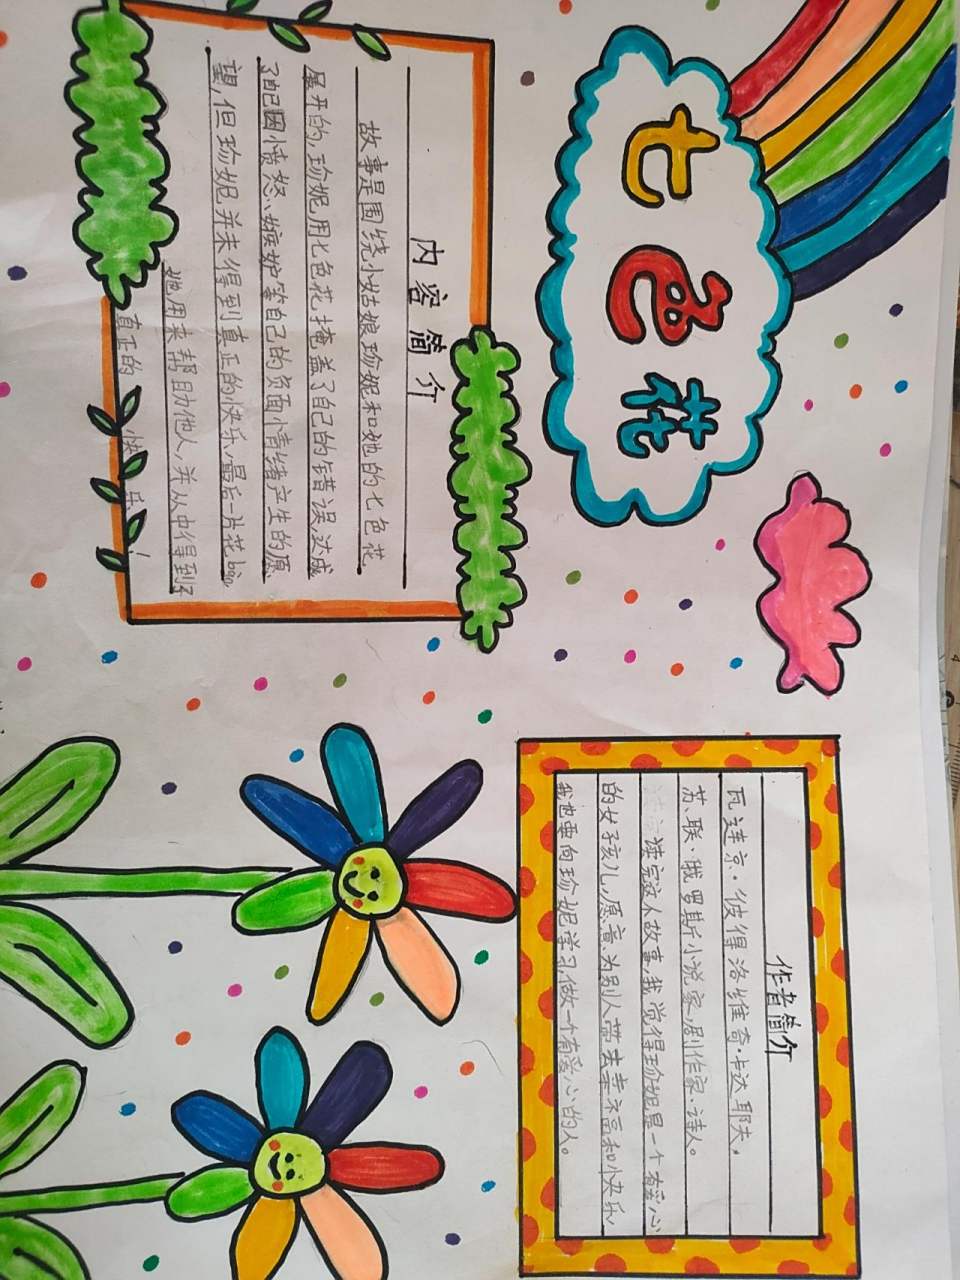 七色花
内容简介
故事是围绕小姑娘珍妮和她的七色花
展开的,珍妮用七色花掩盖了自己的错误,达成
了自己因愤怒、嫉妒等自己的负面情绪产生的愿
望,但珍妮并未得到真正的快乐,最后一片花bàn
她用来帮助他人,并从中得到了
真正的快乐!
作者简介
瓦连京·彼得洛维奇·卡达耶夫,
苏、联·俄罗斯小说家、剧作家·诗人。
读完这个故事,我觉得珍妮是一个有爱心
的女孩儿,愿意为别人带去幸福和快乐,
我也要向珍妮学习,做一个有爱心的人。